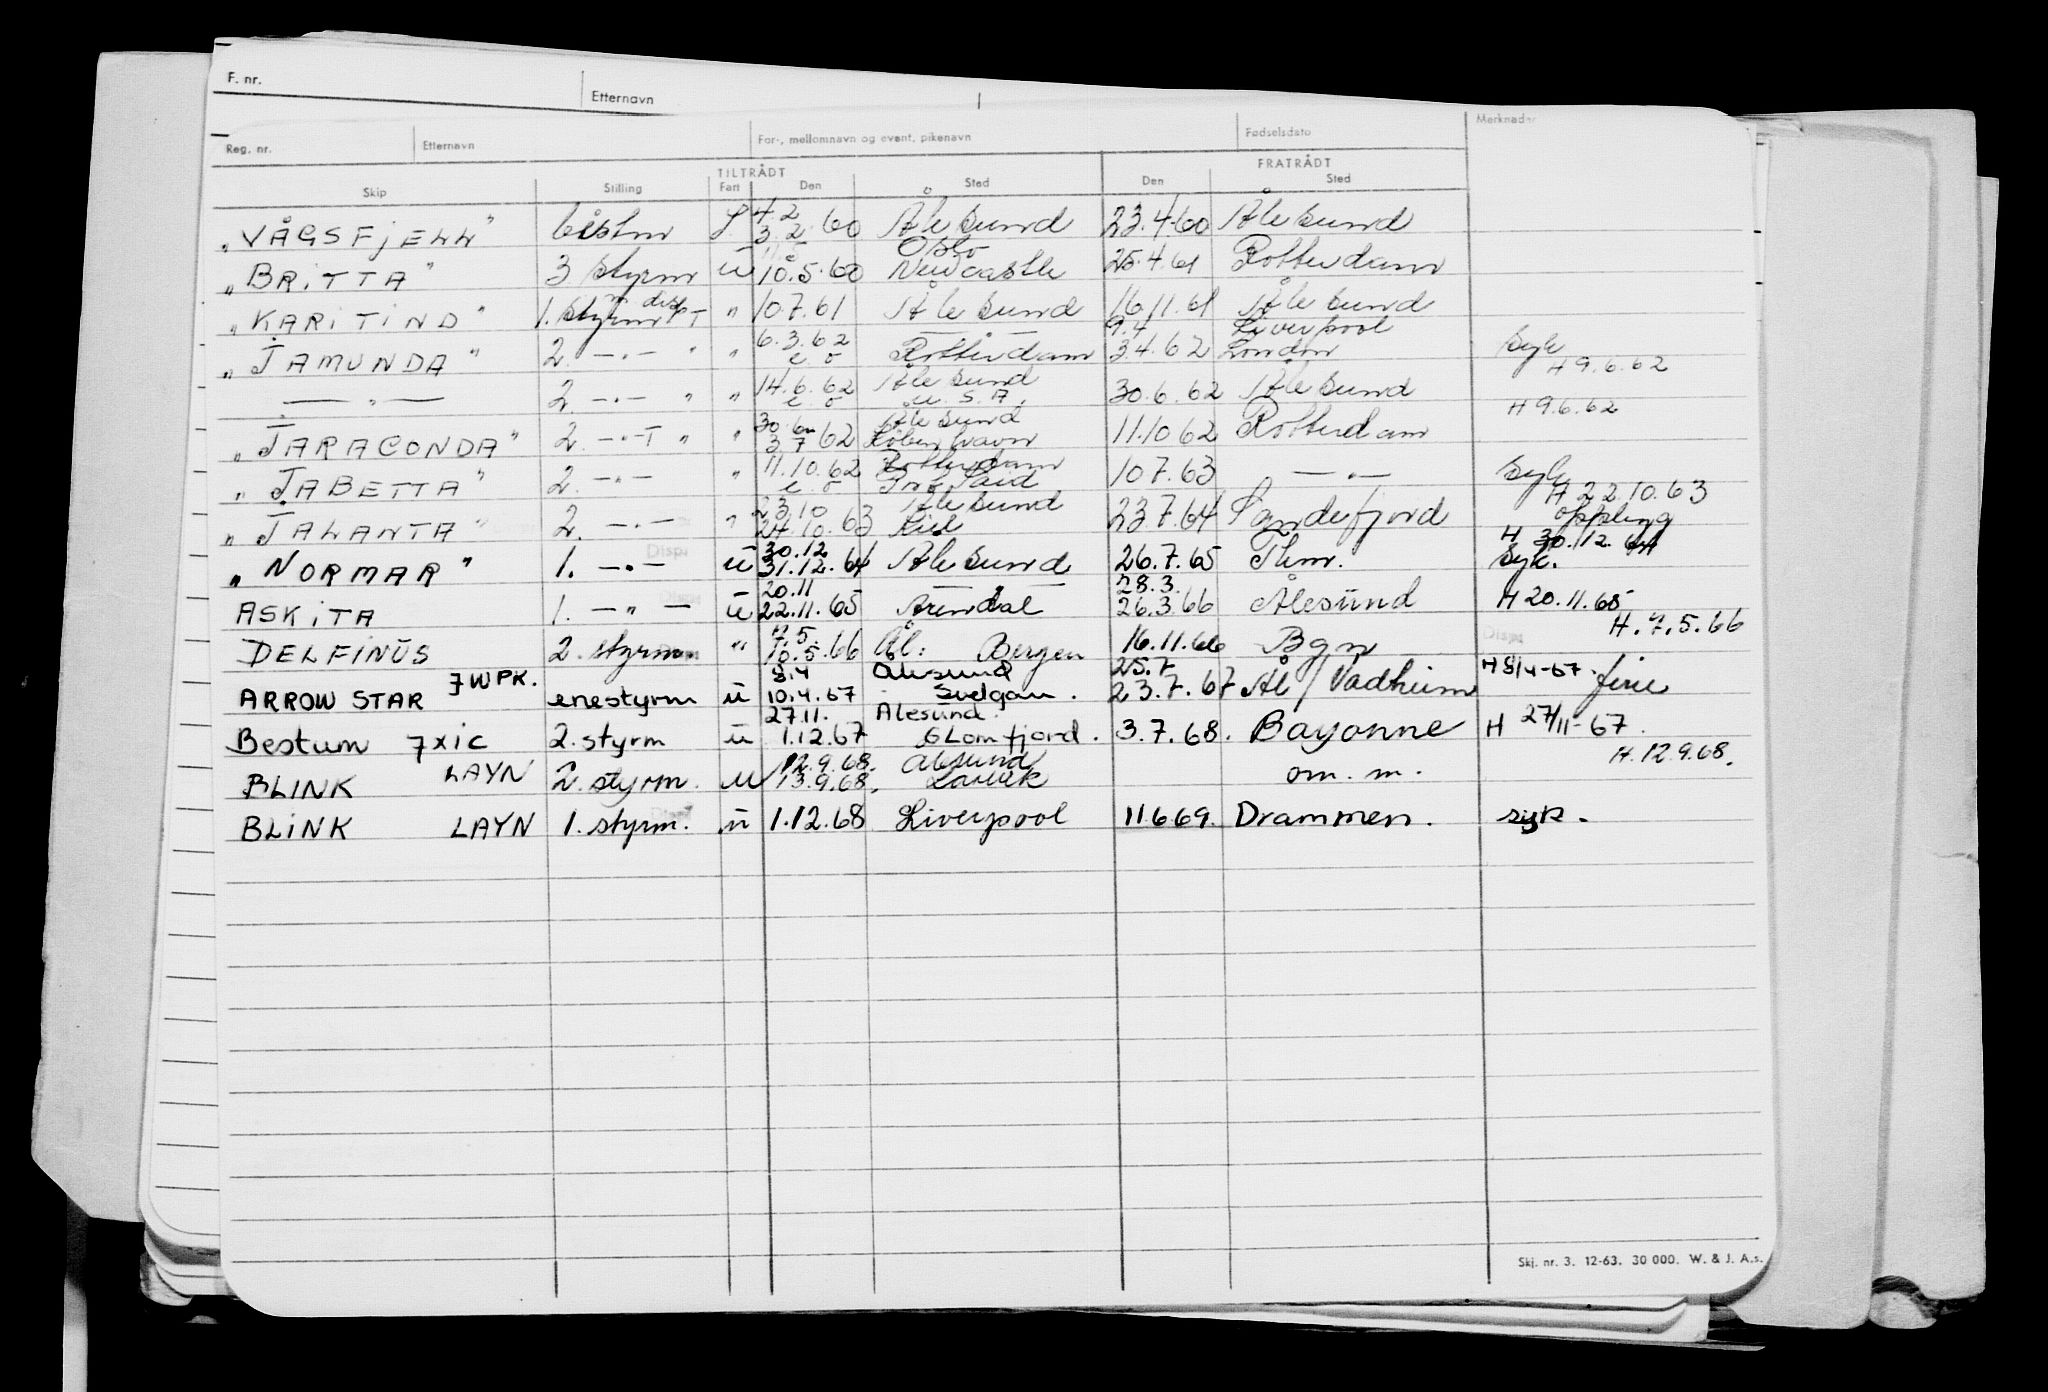 F. nr. Etternavn
Reg. nr. Etternavn For-, mellomnavn og event. pikenavn Fødselsdato Merknader
TILTRÅDT FRATRÅDT
Skip Stilling Fart Den Sted Den Sted
4.2
"VÅGSFJELL" båtsm 3.2.60 Ålesund 23.4.60 Ålesund
Oslo
"BRITTA" 3 styrm u 10.5.60 Newcastle 25.4.61 Rotterdam
m disp
"KARITIND" 1. styrm T " 10.7.61 Ålesund 16.11.61 Ålesund
6.3.62 — " — 9.4 Liverpool
"JAMUNDA" 2. — " — " " e o Rotterdam 3.4.62 London syk
H 9.6.62
14.6.62 Ålesund
— " — 2 — " — " " e o U.S.A. 30.6.62 Ålesund
H 9.6.62
30.6 Ålesund
"JARACONDA" 2. — " — T " " 3 7 62 København 11.10 62 Rotterdam
11.10.62 Rotterdam
"JABETTA" 2. — " — " e o Port Said 10 7.63 — " — syk
H 22.10.63
23 10 Ålesund
"JALANTA" 2. — " — " 24.10.63 Kiel 23.7.64 Sandefjord oppling
H 30.12.64
30.12 Disp
"NORMAR" 1. — " — u 31.12.64 Ålesund 26.7.65 Thm. syk.
20.11 — 28.3.
ASKITA 1. — " — u 22.11.65 Arendal 26.3.66 Ålesund H 20.11.65
H. 7.5.66
7.5. Disp
DELFINUS 2. styrm. " 10.5.66 Ål: Bergen 16.11.66 Bgn
8.4 Ålesund 25.7 H 8/4-67
ARROW STAR 7WPK. enestyrm u 10.4.67 Svelgen. 23.7.67 Ål / Vadheim ferie
27.11. Ålesund.
Bestum 7XIC 2. styrm u 1.12.67 Glomfjord. 3.7.68. Bayonne H 27/11-67.
H. 12.9.68.
12.9.68. Ålesund
BLINK LAYN 2. styrm. u 13.9.68. Larvik om. m.
BLINK LAYN 1. styrm. u 1.12.68 Liverpool 11.6 69. Drammen. syk.
Skj. nr. 3. 12-63. 30 000. W. & J. A.s.